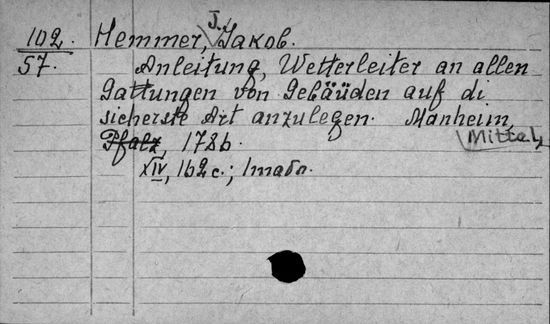 102. Hemmer, J. Jakob.
57. Anleitung, Wetterleiter an allen
Gattungen von Gebäüden auf di
sicherste Art anzulegen. Manheim,
Pfalz, 1786. Mittel,
XIV, 162 с.; 1 табл.